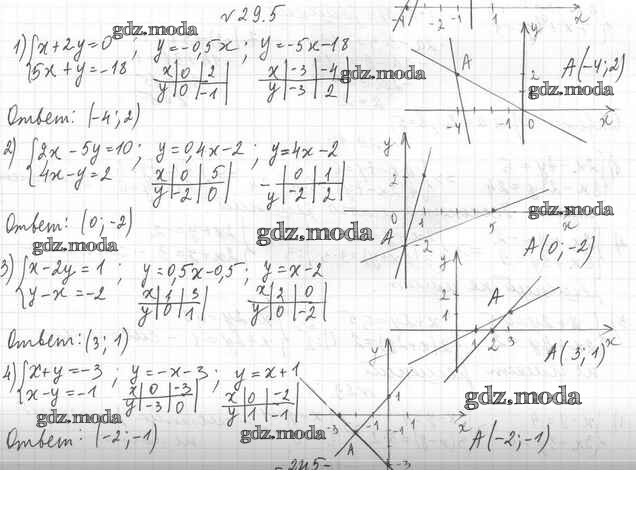 № 29.5
1) { x+2y=0 ; y=-0,5x ; y=-5x-18
5x+y=-18
x | 0 | 2
y | 0 | -1
x | -3 | -4
y | -3 | 2
A(-4;2)
Ответ: (-4; 2)
2) { 2x-5y=10 ; y=0,4x-2 ; y=4x-2
4x-y=2
x | 0 | 5
y | -2 | 0
| 0 | 1
y | -2 | 2
Ответ: (0; -2)
A(0; -2)
3) { x-2y=1 ; y=0,5x-0,5 ; y=x-2
y-x=-2
x | 1 | 3
y | 0 | 1
x | 2 | 0
y | 0 | -2
Ответ: (3; 1)
A(3; 1)
4) { x+y=-3 ; y=-x-3 ; y=x+1
x-y=-1
x | 0 | -3
y | -3 | 0
x | 0 | -2
y | 1 | -1
Ответ: (-2; -1)
A(-2; -1)
gdz.moda
gdz.moda
gdz.moda
gdz.moda
gdz.moda
gdz.moda
gdz.moda
gdz.moda
gdz.moda